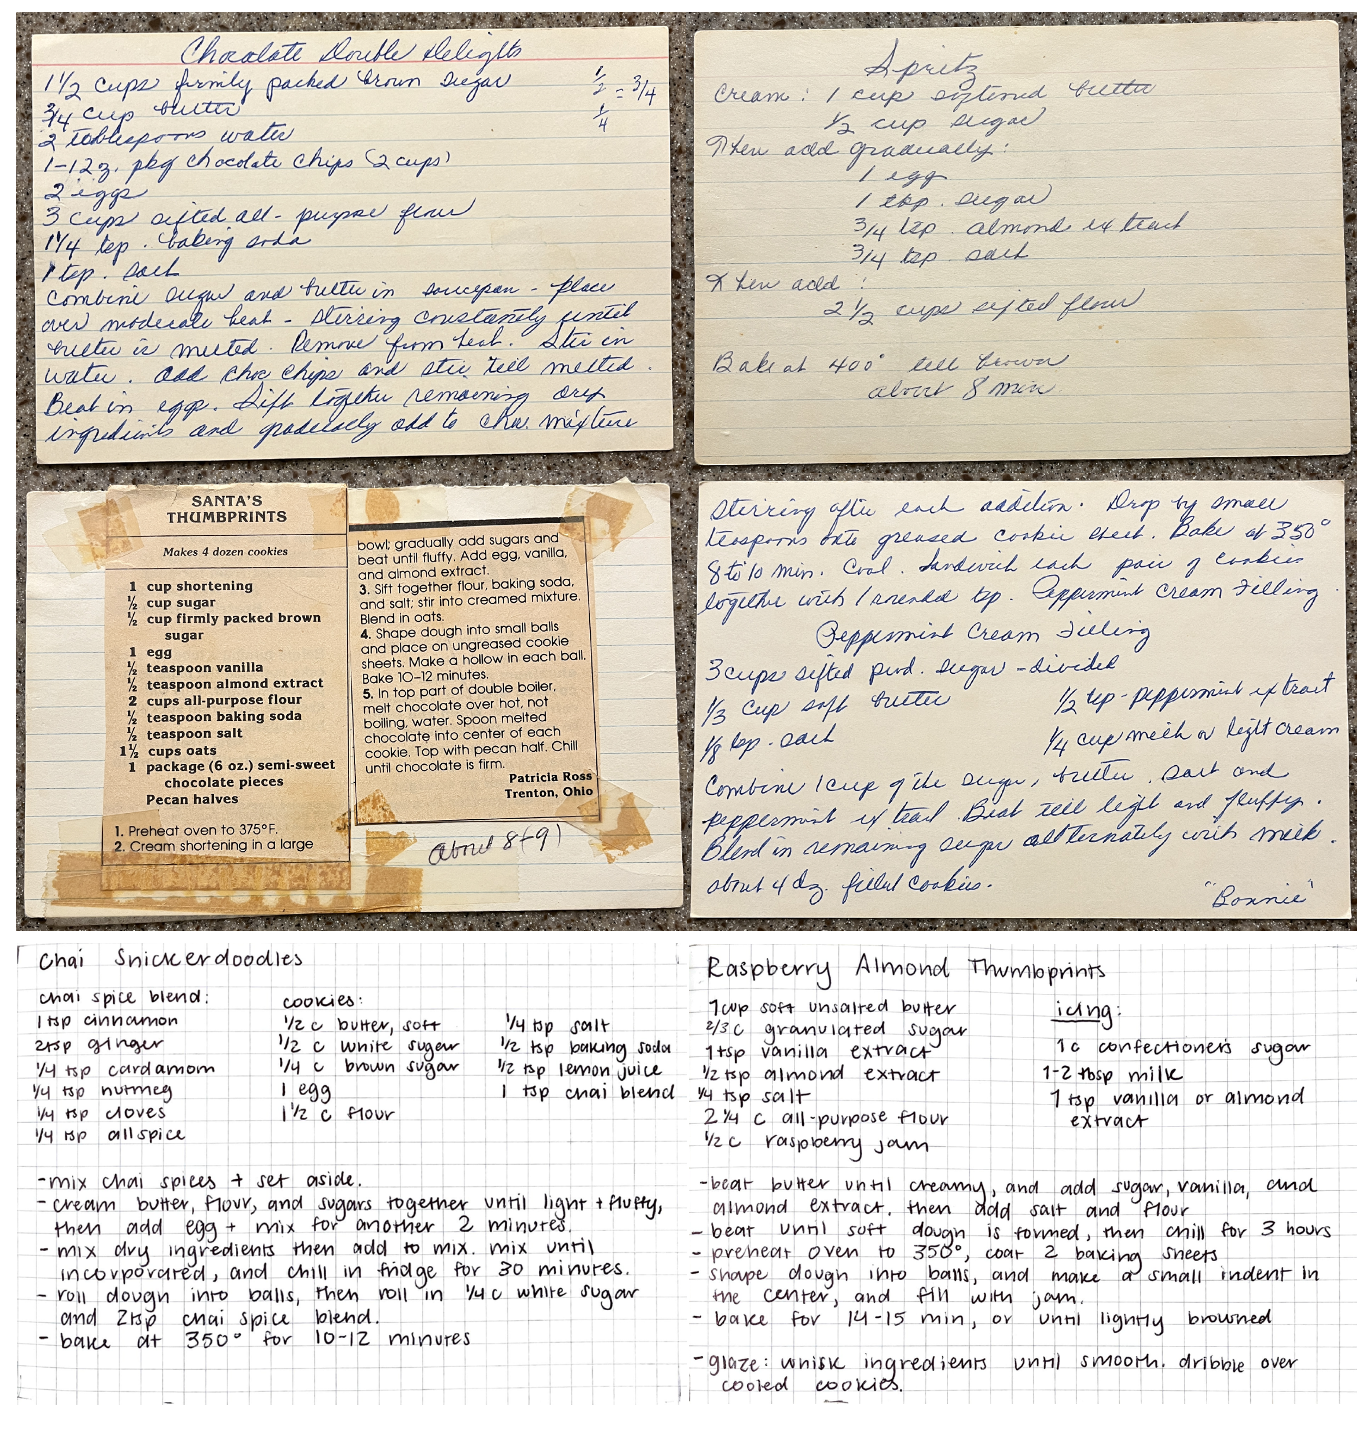 Chocolate Double Delights
1 1/2 cups firmly packed brown sugar
3/4 cup butter
1/2
1/4
= 3/4
2 tablespoons water
1-12 z. pkg chocolate chips (2 cups)
2 eggs
3 cups sifted all-purpose flour
1 1/4 tsp. baking soda
1 tsp. salt
Combine sugar and butter in saucepan - place
over moderate heat - stirring constantly until
butter is melted. Remove from heat. Stir in
water. add choc chips and stir till melted.
Beat in eggs. Sift together remaining dry
ingredients and gradually add to choc. mixture
Spritz
Cream: 1 cup softened butter
1/2 cup sugar
Then add gradually:
1 egg
1 tbsp. sugar
3/4 tsp. almond extract
3/4 tsp salt
Then add:
2 1/2 cups sifted flour
Bake at 400° till brown
about 8 min
SANTA'S
THUMBPRINTS
Makes 4 dozen cookies
1 cup shortening
½ cup sugar
½ cup firmly packed brown
sugar
1 egg
½ teaspoon vanilla
½ teaspoon almond extract
2 cups all-purpose flour
½ teaspoon baking soda
½ teaspoon salt
1½ cups oats
1 package (6 oz.) semi-sweet
chocolate pieces
Pecan halves
1. Preheat oven to 375°F.
2. Cream shortening in a large
bowl; gradually add sugars and
beat until fluffy. Add egg, vanilla,
and almond extract.
3. Sift together flour, baking soda,
and salt; stir into creamed mixture.
Blend in oats.
4. Shape dough into small balls
and place on ungreased cookie
sheets. Make a hollow in each ball.
Bake 10-12 minutes.
5. In top part of double boiler,
melt chocolate over hot, not
boiling, water. Spoon melted
chocolate into center of each
cookie. Top with pecan half. Chill
until chocolate is firm.
Patricia Ross
Trenton, Ohio
About 8+9
stirring after each addition. Drop by small
teaspoons onto greased cookie sheet. Bake at 350°
8 to 10 min. Cool. Sandwich each pair of cookies
together with 1 rounded tsp. Peppermint Cream Filling.
Peppermint Cream Filling
3 cups sifted pwd. sugar - divided
1/3 cup soft butter
1/2 tsp - peppermint extract
1/8 tsp. salt
1/4 cup milk or light cream
Combine 1 cup of the sugar, butter, salt and
peppermint extract. Beat till light and fluffy.
Blend in remaining sugar allternately with milk.
about 4 dz. filled cookies.
"Bonnie"
Chai Snickerdoodles
chai spice blend:
1 tsp cinnamon
2tsp ginger
1/4 tsp cardamom
1/4 tsp nutmeg
1/4 tsp cloves
1/4 tsp allspice
cookies:
1/2 c butter, soft
1/2 c white sugar
1/4 c brown sugar
1 egg
1 1/2 c flour
1/4 tsp salt
1/2 tsp baking soda
1/2 tsp lemon juice
1 tsp chai blend
- mix chai spices + set aside.
- cream butter, flour, and sugars together until light + fluffy,
then add egg + mix for another 2 minutes.
- mix dry ingredients then add to mix. mix until
incorporated, and chill in fridge for 30 minutes.
- roll dough into balls, then roll in 1/4 c white sugar
and 2tsp chai spice blend.
- bake at 350° for 10-12 minutes
Raspberry Almond Thumbprints
1 cup soft unsalted butter
2/3 c granulated sugar
1 tsp vanilla extract
1/2 tsp almond extract
1/4 tsp salt
2 1/4 c all-purpose flour
1/2 c raspberry jam
icing:
1 c confectioners sugar
1-2 tbsp milk
1 tsp vanilla or almond
extract
- beat butter until creamy, and add sugar, vanilla, and
almond extract. then add salt and flour
- beat until soft dough is formed, then chill for 3 hours
- preheat oven to 350°, coat 2 baking sheets
- shape dough into balls, and make a small indent in
the center, and fill with jam.
- bake for 14-15 min, or until lightly browned
- glaze: whisk ingredients until smooth. dribble over
cooled cookies.